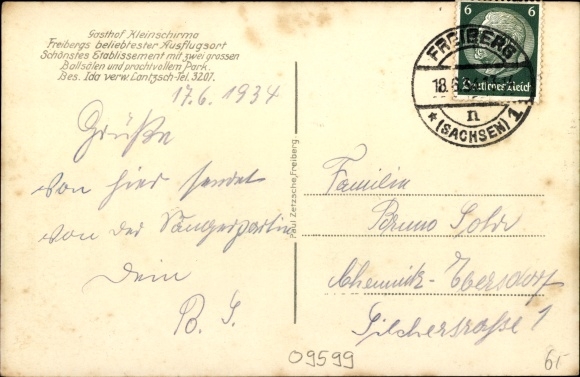 Gasthof Kleinschirma
Freibergs beliebtester Ausflugsort
Schönstes Etablissement mit zwei grossen
Ballsälen und prachtvollem Park.
Bes. Ida verw. Lantzsch-Tel. 3207.
17.6.1934
Grüße
von hier sendet
von der Sängerpartie
Dein
B. S.
Paul Zetzsche, Freiberg.
6 6
Deutsches Reich
FREIBERG
18.6.34
n
* (SACHSEN) 1
Familie
Bruno
Chemnitz-Ebersdorf
Pilcherstraße 1
09599